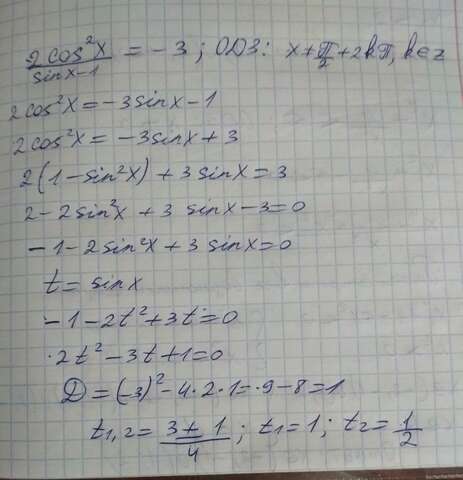 2cos²x/sinx-1 = -3; ОДЗ: x+π/2+2kπ, k∈z
2cos²x = -3sinx-1
2cos²x = -3sinx+3
2(1-sin²x)+3sinx=3
2-2sin²x+3 sinx-3=0
-1-2sin²x+3sinx=0
t= sinx
-1-2t²+3t=0
·2t²-3t+1=0
D=(-3)²-4·2·1=·9-8=1
t1,2= 3±1/4; t1=1; t2=1/2